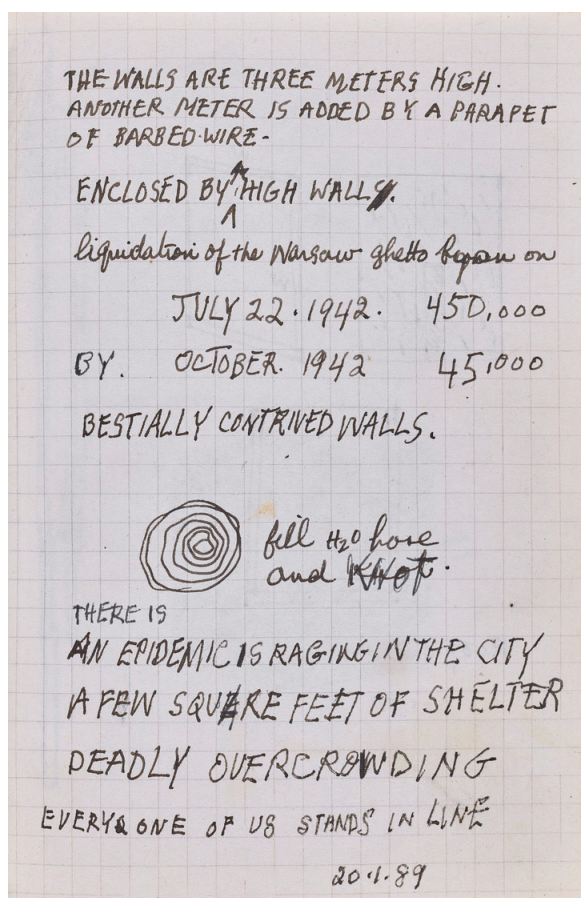 THE WALLS ARE THREE METERS HIGH.
ANOTHER METER IS ADDED BY A PARAPET
OF BARBED WIRE-
ENCLOSED BY HIGH WALLS.
liquidation of the Warsaw ghetto began on
JULY 22.1942. 450,000
BY. OCTOBER. 1942 45,000
BESTIALLY CONTRIVED WALLS.
fill H2O hose
and KNOT.
THERE IS
AN EPIDEMIC IS RAGING IN THE CITY
A FEW SQUARE FEET OF SHELTER
DEADLY OVERCROWDING
EVERY ONE OF US STANDS IN LINE
20.1.89